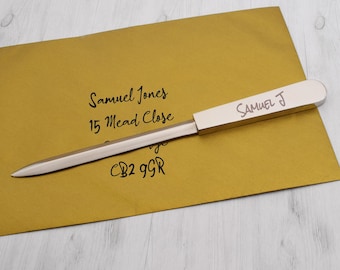 Samuel Jones
15 Mead Close
CB2 9GR
SAMUEL J